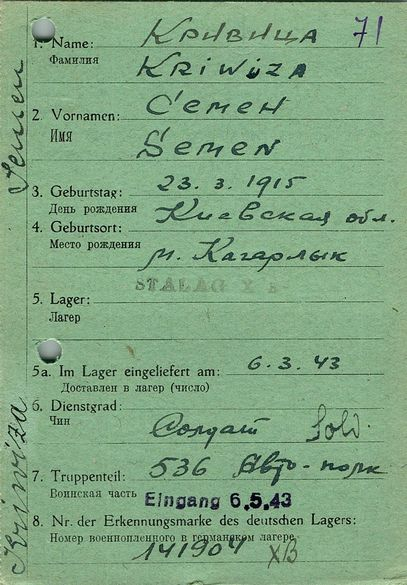 71
1. Name: Кривица
Фамилия Kriwiza
2. Vornamen: Семен
Имя Semen
3. Geburtstag: 23. 3. 1915
День рождения Киевская обл.
4. Geburtsort:
Место рождения м. Кагарлык
STALAG X B
5. Lager:
Лагер
5a. Im Lager eingeliefert am: 6.3.43
Доставлен в лагер (число)
6. Dienstgrad:
Чин Солдат Sold.
7. Truppenteil: 536 Авто-полк
Воинская часть Eingang 6.5.43
8. Nr. der Erkennungsmarke des deutschen Lagers:
Номер военнопленного в германском лагере
141904 XB
Kriwiza Semen